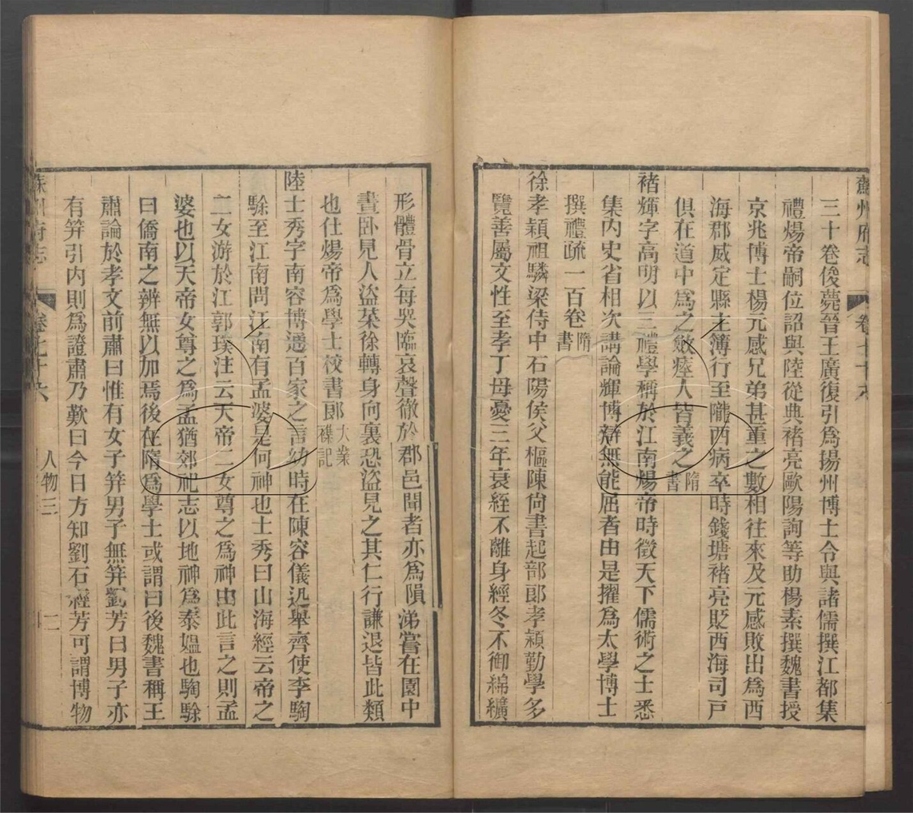 蘇州府志 卷七十六
三十卷俊薨晉王廣復引爲揚州博士令與諸儒撰江都集
禮煬帝嗣位詔與陸從典褚亮歐陽詢等助楊素撰魏書授
京兆博士楊元感兄弟甚重之數相往來及元感敗出爲西
海郡威定縣主簿行至隴西病卒時錢塘褚亮貶西海司戸
俱在道中爲之斂瘞人皆義之隋書
褚輝字高明以三禮學稱於江南煬帝時徵天下儒術之士悉
集內史省相次講論輝博辯無能屈者由是擢爲太學博士
撰禮疏一百卷隋書
徐孝穎祖驎梁侍中石陽侯父樞陳尙書起部郞孝穎勤學多
覽善屬文性至孝丁母憂三年衰絰不離身經冬不御綿纊
形體骨立每哭臨哀聲徹於郡邑聞者亦爲隕涕嘗在園中
晝卧見人盜菜徐轉身向裏恐盜見之其仁行謙退皆此類
也仕煬帝爲學士校書郞大業襍記
陸士秀字南容博通百家之言幼時在陳容儀迅舉齊使李騊
駼至江南問江南有孟婆是何神也士秀曰山海經云帝之
二女游於江郭璞注云天帝二女尊之爲神由此言之則孟
婆也以天帝女尊之爲孟猶郊祀志以地神爲泰媼也騊駼
曰僑南之辨無以加焉後在隋爲學士或謂曰後魏書稱王
肅論於孝文前肅曰惟有女子笄男子無笄劉芳曰男子亦
有笄引內則爲證肅乃歎曰今日方知劉石經芳可謂博物
蘇州府志 卷七十六 人物三 二